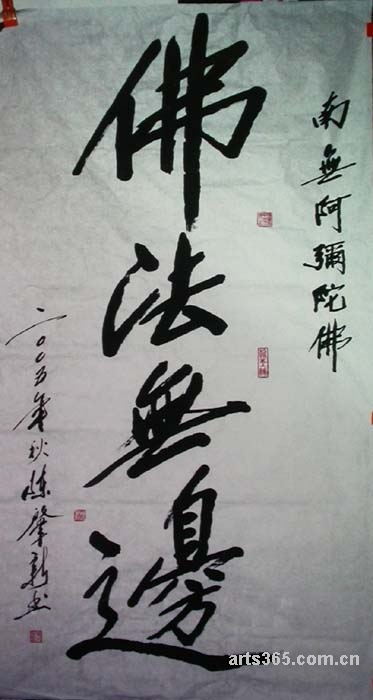 南無阿彌陀佛
佛法無邊
二〇〇五年秋陈肇新书
arts365.com.cn